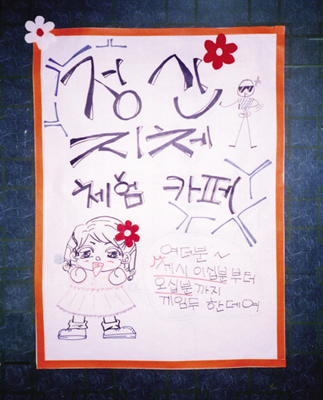 정신
지체
체험 카페
여더분~
이십분부터
오십분까지
게임두 한데여